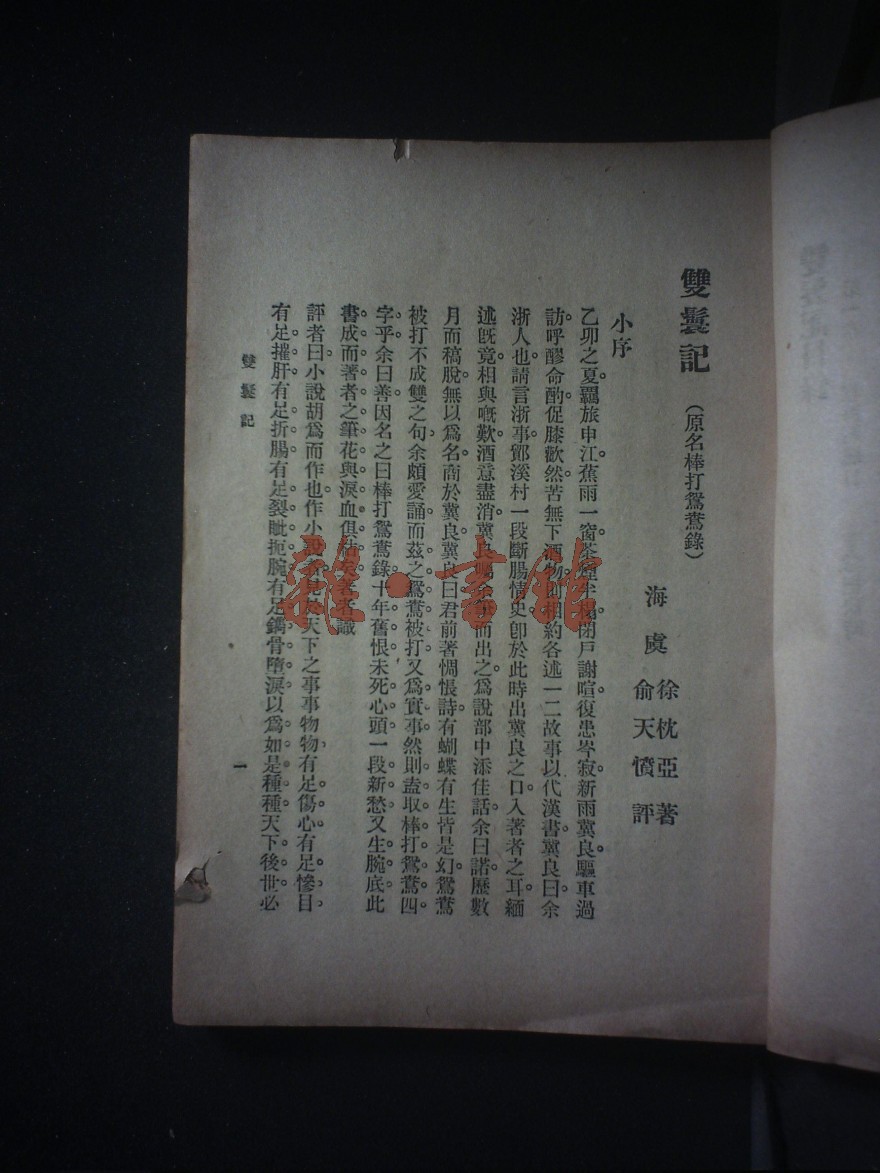 雙鬟記 (原名棒打鴛鴦錄)
海虞 徐枕亞著
俞天憤評
小序
乙卯之夏。羈旅申江。蕉雨一窗。茶煙半榻。閉戶謝喧。復患岑寂。新雨冀良驅車過
訪。呼醪命酌。促膝歡然。苦無下酒物。相約各述一二故事。以代漢書。冀良曰。余
浙人也。請言浙事。鄧溪村一段斷腸情史。卽於此時出冀良之口。入著者之耳。緬
述旣竟。相與嘅歎。酒意盡消。冀良囑余筆而出之。爲說部中添佳話。余曰諾。歷數
月而稿脫。無以爲名。商於冀良。冀良曰。君前著惆悵詩。有蝴蝶有生皆是幻。鴛鴦
被打不成雙之句。余頗愛誦。而茲之鴛鴦被打。又爲實事。然則盍取棒打鴛鴦四
字乎。余曰善。因名之曰棒打鴛鴦錄。十年舊恨。未死心頭。一段新愁。又生腕底。此
書成而著者之筆花與淚血俱枯矣。著者識
評者曰。小說胡爲而作也。作小說者。見夫天下之事事物物。有足傷心。有足慘目。
有足摧肝。有足折腸。有足裂眦扼腕。有足鐫骨墮淚。以爲如是種種。天下後世必
雙鬟記
一
雜·書館